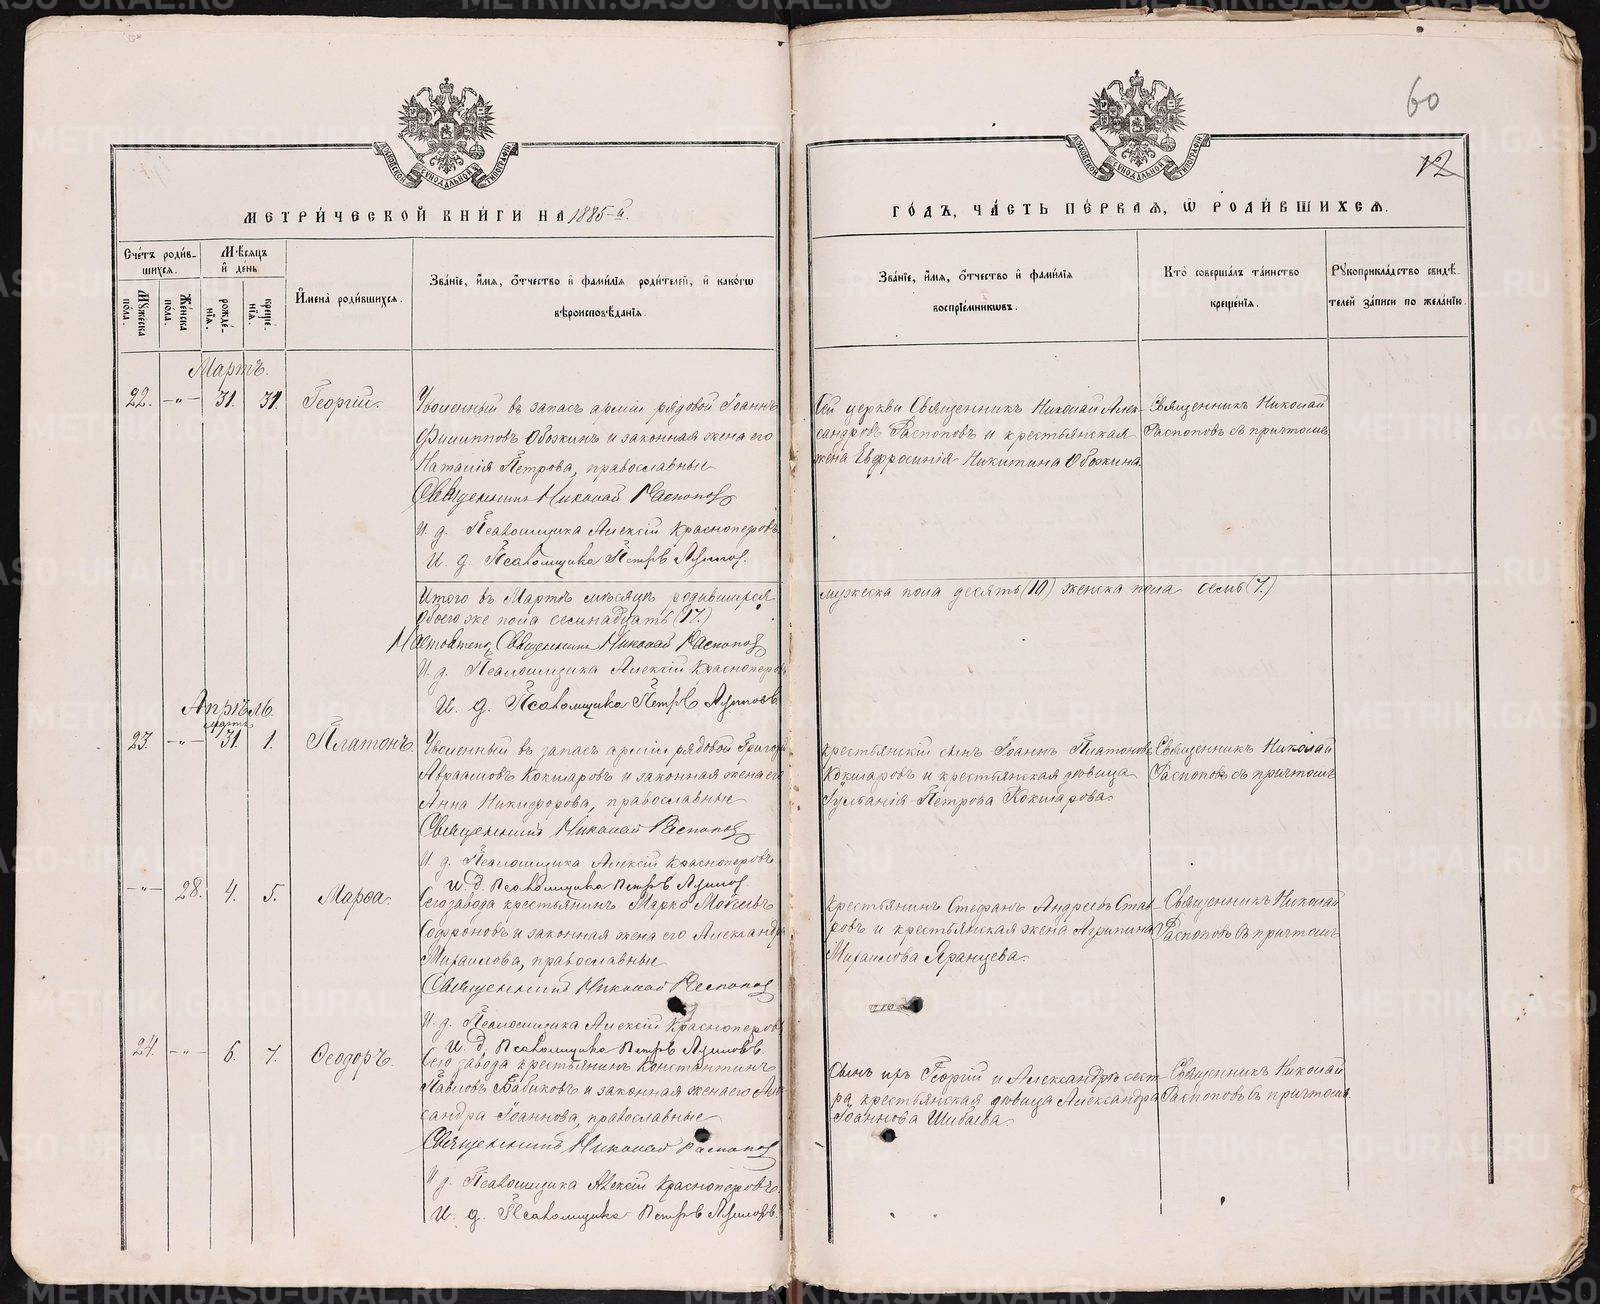 60
12
МОСКОВСКОЙ СѴНОДАЛЬНОЙ ТИПОГРАФІИ
МОСКОВСКОЙ СѴНОДАЛЬНОЙ ТИПОГРАФІИ
МЕТРИ́ЧЕСКОЙ КНИ́ГИ НА 1885-й.
ГО́ДЪ, ЧА́СТЬ ПЕ́РВАЯ, Ѡ РОДИ́ВШИХСЯ.
Сче́тъ роди́в-
шихся.
Мѣ́сяцъ
и҆ де́нь
Му́жеска
по́ла.
Же́нска
по́ла.
рожде́-
нїя.
креще́-
нїя.
И҆мена̀ роди́вшихся.
Зва́нїе, и҆́мя, ѻ҆́тчество и҆ фами́лїя роди́телей, и҆ како́гѡ
вѣроисповѣ́данїя.
Зва́нїе, и҆́мя, ѻ҆́тчество и҆ фами́лїя
воспрїе́мникѡвъ.
Кто̀ соверша́лъ та́инство
креще́нїя.
Рꙋкоприкла́дство свидѣ́-
телей за́писи по жела́нїю.
Мартъ.
22. -„- 31. 31. Георгій.
Уволенный въ запасъ арміи рядовой Іоаннъ
Филипповъ Обожинъ и законная жена его
Наталія Петрова, православные
Священникъ Николай Распопов
И. д. Псаломщика Алексій Красноперовъ
И. д. Псаломщика Петръ
Сей церкви Священникъ Николай Алек-
сандровъ Распоповъ и крестьянская
жена Евфросинія Никитина Обожина.
Священникъ Николай
Распоповъ съ причтомъ
Итого въ Мартѣ мѣсяцѣ родившихся
обоего же пола семнадцать (17.)
мужеска пола десять (10) женска пола семь (7.)
Настоятель Священникъ Николай Распопов
И. д. Псаломщика Алексій Красноперов
И. д. Псаломщика Петръ
Апрѣль.
мартъ
23. -„- 31. 1. Платонъ.
Уволенный въ запасъ арміи рядовой Григорій
Авраамовъ Кокшаровъ и законная жена его
Анна Никифорова, православные
Священникъ Николай Распопов
И. д. Псаломщика Алексій Красноперовъ
И. д. Псаломщика Петръ
крестьянскій сынъ Іоаннъ Платоновъ
Кокшаровъ и крестьянская дѣвица
Іуліанія Петрова Кокшарова.
Священникъ Николай
Распоповъ съ причтомъ
-„- 28. 4. 5. Марѳа.
Сего завода крестьянинъ Марко Моѵсеевъ
Софроновъ и законная жена его Александра
Михаилова, православные
Священникъ Николай Распопов
И. д. Псаломщика Алексій Красноперовъ
И. д. Псаломщика Петръ
крестьянинъ Стефанъ Андреевъ
и крестьянская жена Агрипина
Михаилова Яранцева.
Священникъ Николай
Распоповъ съ причтомъ
24. -„- 6. 7. Ѳеодоръ.
Сего завода крестьянинъ Константинъ
Павловъ Бабиковъ и законная жена его Алек
сандра Іоаннова, православные
Священникъ Николай Распопов
И. д. Псаломщика Алексій Красноперовъ
И. д. Псаломщика Петръ
сынъ ихъ Георгій и Александръ сест-
ра крестьянская дѣвица Александра
Іоаннова Шибаева.
Священникъ Николай
Распоповъ съ причтомъ
METRIKI.GASO-URAL.RU